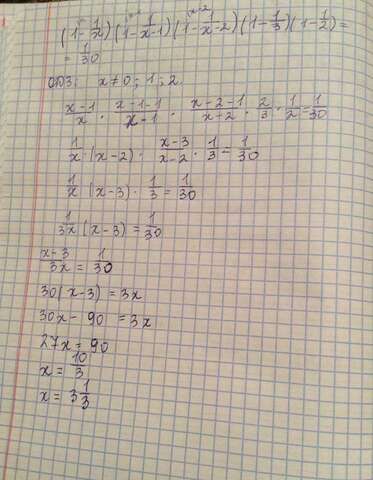 (1-1/x)(1-1/x-1)(1-1/x-2)(1-1/3)(1-1/2)=
=1/30
ОДЗ: x≠0; 1; 2.
x-1/x · x-1-1/x-1 · x-2-1/x+2 · 2/3 · 1/2 = 1/30
1/x · (x-2) · x-3/x-2 · 1/3 = 1/30
1/x (x-3) · 1/3 = 1/30
1/3x (x-3) = 1/30
x-3/3x = 1/30
30(x-3) = 3x
30x - 90 = 3x
27x = 90
x = 10/3
x = 3 1/3